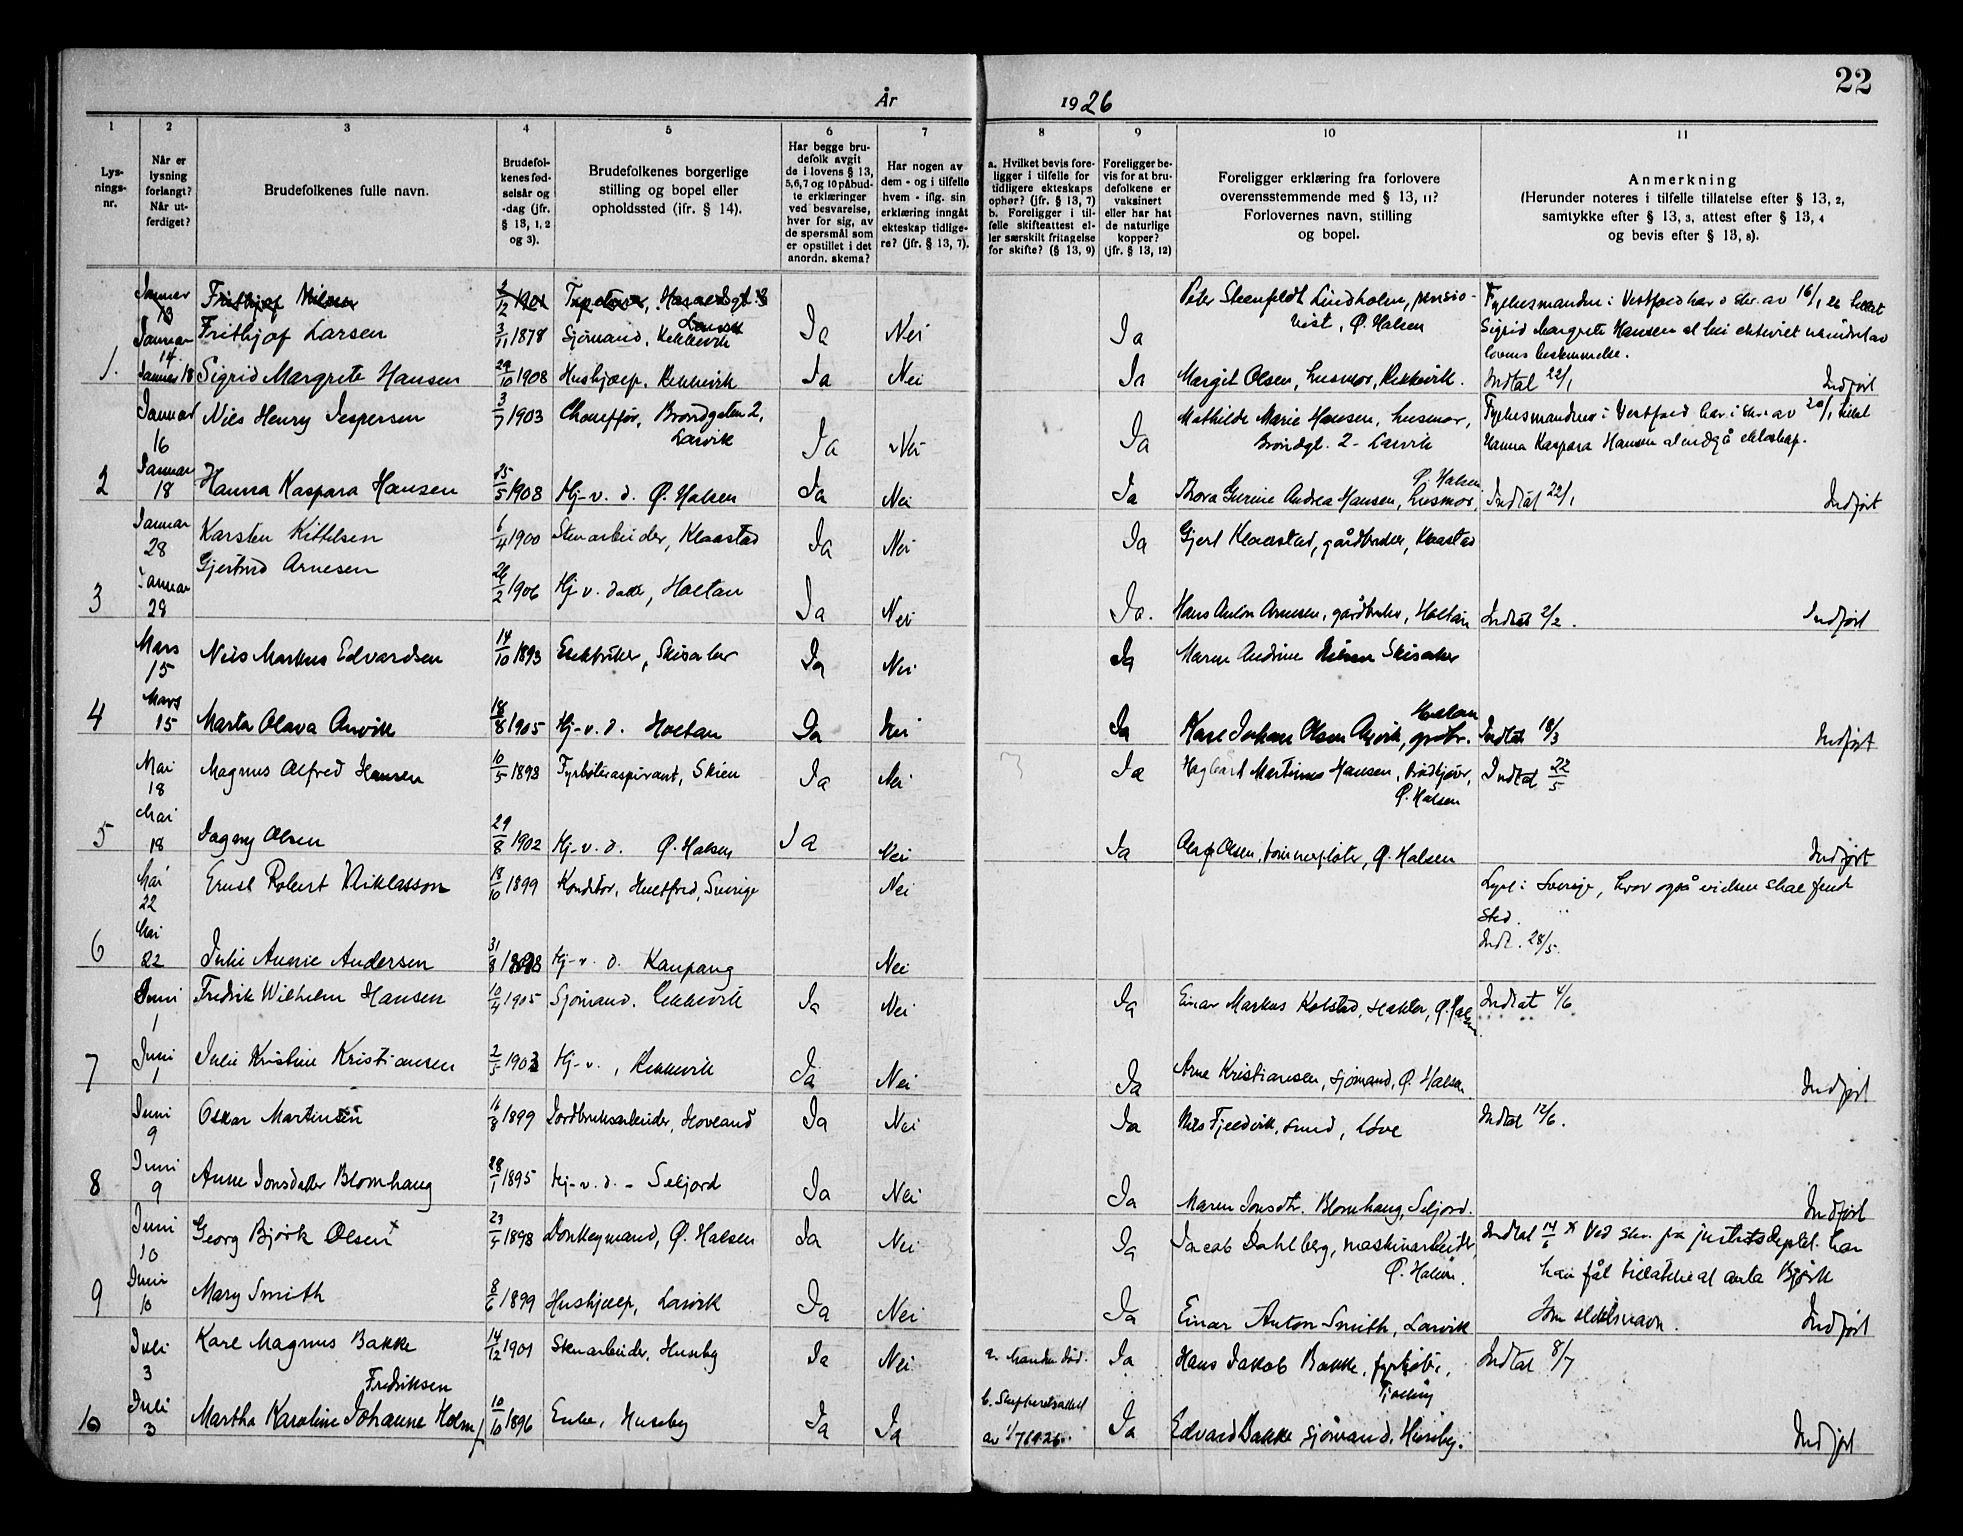 År 1926
22
1 2 3 4 5 6 7 8 9 10 11
Lysningsnr.
Når er lysning forlangt? Når utferdiget?
Brudefolkenes fulle navn.
Brudefolkenes fødselsår og -dag (jfr. § 13, 1, 2 og 3).
Brudefolkenes borgerlige stilling og bopel eller opholdssted (ifr. § 14).
Har begge brudefolk avgit de i lovens § 13, 5, 6, 7 og 10 påbudte erklæringer ved besvarelse, hver for sig, av de spørsmål som er opstillet i det anordn. skema?
Har nogen av dem - og i tilfelle hvem - iflg. sin erklæring inngått ekteskap tidligere? (jfr. § 13, 7).
a. Hvilket bevis foreligger i tilfelle for tidligere ekteskaps ophør? (jfr. § 13, 7) b. Foreligger i tilfelle skifteattest eller særskilt fritagelse for skifte? (§ 13, 9)
Foreligger bevis for at brudefolkene er vaksinert eller har hat de naturlige kopper? (jfr. § 13, 12)
Foreligger erklæring fra forlovere overensstemmende med § 13, 11? Forlovernes navn, stilling og bopel.
Anmerkning (Herunder noteres i tilfelle tillatelse efter § 13, 2, samtykke efter § 13, 3, attest efter § 13, 4 og bevis efter § 13, 8).
Januar 13 Frithjof Nilsen 2/12 1901
Januar 14 Frithjof Larsen 3/11 1878 Sjømand, Rekkevik Ja Nei Ja Peter Steenfeldt Lindholm, pensionist, Ø. Halsen Fylkesmanden i Vestfold har i skr. av 16/1 26 tillatt Sigrid Margrete Hansen at bli ekteviet uhindret av lovens bestemmelse.
1. Januar 18 Sigrid Margrete Hansen 29/10 1908 Hushjælp, Rekkevik Ja Nei Ja Margit Olsen, husmor, Rekkevik. Indtat 22/1 Indført
Januar 16 Nils Henry Jespersen 3/7 1903 Chauffør, Brøndgaten 2, Larvik Ja Nei Ja Mathilde Marie Hansen, husmor, Brøndgt. 2 - Larvik Fylkesmanden i Vestfold har i skr. av 20/1 tillat Hanna Kaspara Hansen at indgå ekteskap.
2 Januar 18 Hanna Kaspara Hansen 25/5 1908 Hj-v. d. Ø. Halsen Ja Nei Ja Thora Gurine Andrea Hansen, husmor, Ø. Halsen Indtat 22/1 Indført
Januar 28 Karsten Kittelsen 6/4 1900 Stenarbeider, Klaastad Ja Nei Ja Gjert Klaastad, gårdbruker, Klaastad
3 Januar 28 Gjertrud Arnesen 26/2 1906 Hj. v. datter, Holtan Ja Nei Ja. Hans Anton Arnesen, gårdbruker, Holtan Indtat 2/2. Indført
Mars 15 Nils Markus Edvardsen 14/10 1893 Elektriker, Skisaker Ja Nei Ja Maren Andrine Nilsen Skisaker
4 Mars 15 Marta Olava Anvik 18/8 1905 Hj-v. d. Holtan Ja Nei Ja Karl Johan Olsen Anvik, grdbr. Holtan Indtat 18/3 Indført
Mai 18 Magnus Alfred Hansen 10/5 1898 Fyrbøteraspirant, Skien Ja Nei Ja Hagbart Martinus Hansen, brødkjører, Ø. Halsen Indtat 22/5
5 Mai 18 Dagny Olsen 29/8 1902 Hj-v. d. Ø. Halsen Ja Nei Ja Olaf Olsen, tømmerfløter, Ø. Halsen Indført
Mai 22 Ernst Robert Niklasson 18/10 1899 Konditor, Hultfred, Sverige Nei Lyst i Sverige, hvor også vielsen skal finde sted. Indt. 28/5.
6 Mai 22 Julie Annie Andersen 31/8 1898 Hj-v. d. Kaupang Nei
Juni 1 Fredrik Wilhelm Hansen 10/4 1905 Sjømand. Rekkevik Ja Nei Ja Einar Markus Kolstad, Ø. Halsen. Indtat 4/6
7 Juni 1 Julie Kristine Kristiansen 2/5 1903 Hj-v., Rekkevik Ja Nei Ja Arne Kristiansen, sjømand, Ø. Halsen Indført
Juni 9 Oskar Martinsen 16/8 1899 Jordbruksarbeider, Hovland Ja Nei Ja Nils Fjeldvik, smed, Løve Indtat 12/6.
8 Juni 9 Anne Jonsdatter Blomhaug 28/1 1895 Hj-v. d. - Seljord Ja Nei Ja Maren Jonsdtr. Blomhaug, Seljord. Indført
Juni 10 Georg Bjørk Olsen x 23/5 1898 Donkeymand, Ø. Halsen Ja Nei Ja Jacob Dahlberg, maskinarbeider, Ø. Halsen. Indtat 14/6 x Ved skr. fra justitsdeptet. har han fåt tillatelse at anta Bjørk
9 Juni 10 Mary Smith 8/6 1899 Hushjælp, Larvik Ja Nei Ja Einar Anton Smith, Larvik som slektsnavn. Indført
Juli 3 Karl Magnus Bakke 14/12 1901 Stenarbeider, Huseby Ja Nei a. Manden død. Ja Hans Jakob Bakke, fyrbøter, Tjølling Indtat 8/7
10 Juli 3 Martha Karoline Johanne Holm f. Fredriksen 10/10 1896 Enke, Huseby Ja Ja b. Skifteretsattest av 1/7 1926. Ja Edvard Bakke sjømand, Huseby. Indført